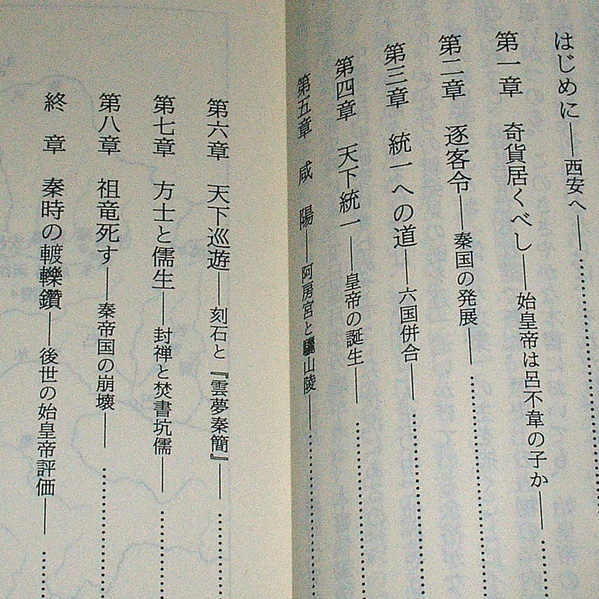 はじめに――西安へ――
第一章　奇貨居くべし――始皇帝は呂不韋の子か――
第二章　逐客令――秦国の発展――
第三章　統一への道――六国併合――
第四章　天下統一――皇帝の誕生――
第五章　咸　陽――阿房宮と驪山陵――
第六章　天下巡遊――刻石と『雲夢秦簡』――
第七章　方士と儒生――封禅と焚書坑儒――
第八章　祖竜死す――秦帝国の崩壊――
終　章　秦時の𨍏轢鑽――後世の始皇帝評価――